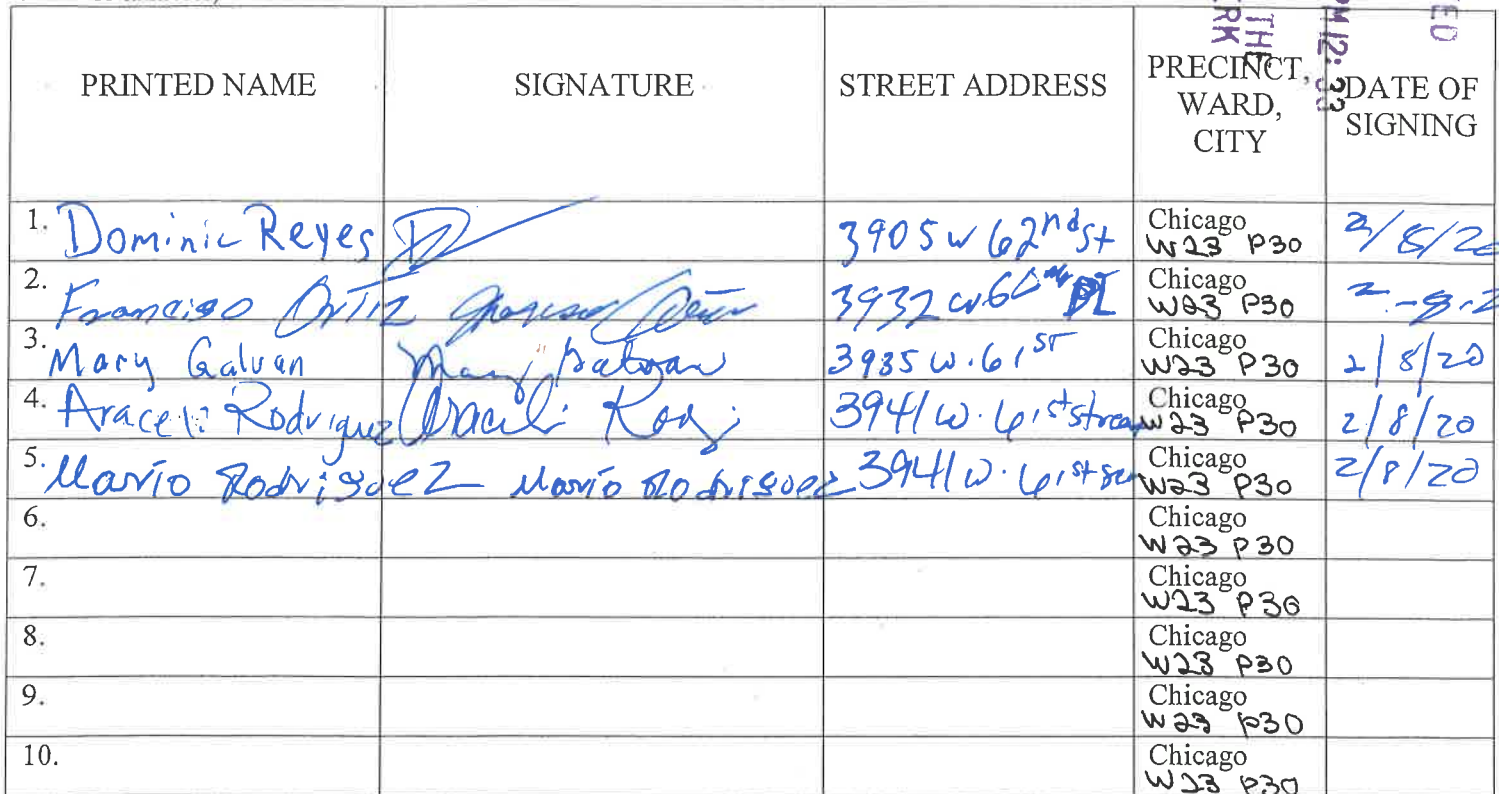 ED
PM 12: 33
THE
ERK
PRINTED NAME SIGNATURE STREET ADDRESS PRECINCT, WARD, CITY DATE OF SIGNING
1. Dominic Reyes 3905 W 62nd St Chicago W23 P30 2/8/20
2. Francisco Ortiz 3932 W Pl Chicago W23 P30 2-8-2
3. Mary Galvan Mary Galvan 3935 W. 61st Chicago W23 P30 2/8/20
4. Araceli Rodriguez Araceli Rodz 3941 W. 61st street Chicago W23 P30 2/8/20
5. Mario Rodriguez Mario Rodriguez 3941 W. 61st Chicago W23 P30 2/8/20
6. Chicago W23 P30
7. Chicago W23 P30
8. Chicago W23 P30
9. Chicago W23 P30
10. Chicago W23 P30